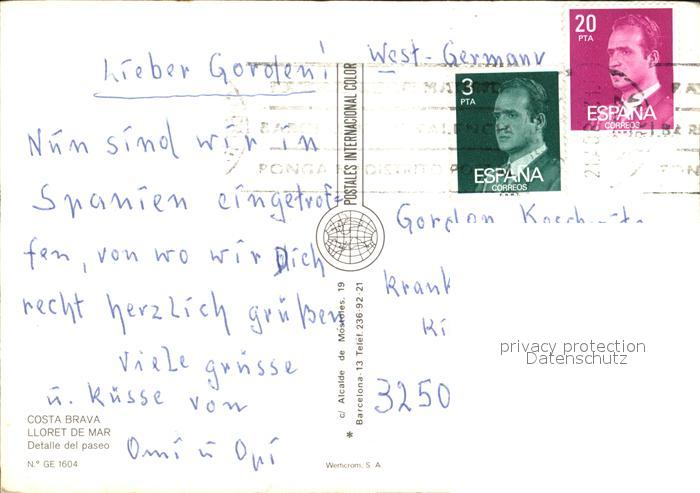 Lieber Gorden!
Nun sind wir in
Spanien eingetrof-
fen, von wo wir Dich
recht herzlich grüßen
Viele grüsse
u. Küsse von
Omi u Opi
COSTA BRAVA
LLORET DE MAR
Detalle del paseo
N.º GE 1604
POSTALES INTERNACIONAL COLOR
c/ Alcalde de Móstoles, 19
Barcelona-13 Teléf. 236 92 21
*
Werticrom, S. A.
West-Germany
3
PTA
ESPAÑA
CORREOS
20
PTA
ESPAÑA
CORREOS
PONGA
DISTRITO
Gordon
Krank
Ki
3250
privacy protection
Datenschutz